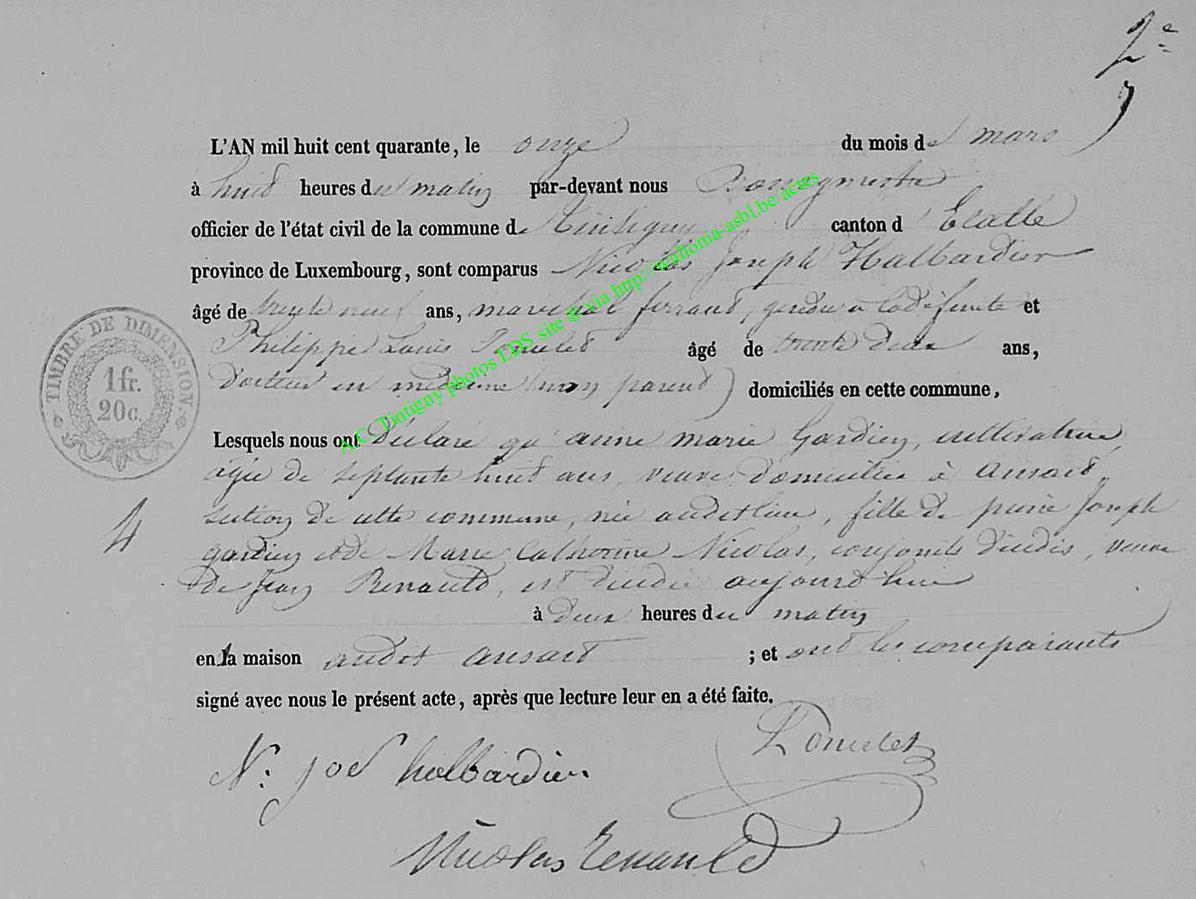 2e
7
L'AN mil huit cent quarante, le onze du mois de mars
à huit heures du matin par-devant nous Bourgmestre
officier de l'état civil de la commune de Tintigny canton d'Etalle
province de Luxembourg, sont comparus Nicolas Joseph Halbardier
âgé de trente neuf ans, marechal ferrant, gendre à la défunte et
Philippe Louis âgé de trente deux ans,
Docteur en médecine (non parent) domiciliés en cette commune,
Lesquels nous ont Déclaré qu'anne marie Gardien, cultivatrice
agée de septante huit ans, veuve domiciliée à ansart,
section de cette commune, née audit lieu, fille de pierre Joseph
gardien et de Marie Catherine Nicolas, conjoints décédés, veuve
de Jean Renauld, est décédée aujourd'hui
à deux heures du matin
en la maison audit ansart ; et ont les comparants
signé avec nous le présent acte, après que lecture leur en a été faite.
N. Jos halbardier
Nicolas Renauld
TIMBRE DE DIMENSION.
1 fr.
20c.
4
A.C. Tintigny photos LDS site @xia http://wallonia-asbl.be/actes